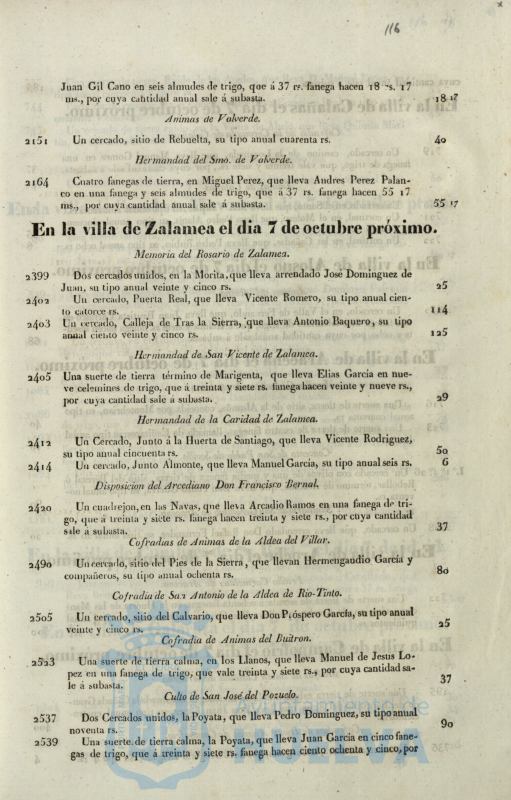 116
Juan Gil Cano en seis almudes de trigo, que á 37 rs. fanega hacen 18 rs. 17
ms., por cuya cantidad anual sale á subasta. 18 17
Animas de Valverde.
2151 Un cercado, sitio de Rebuelta, su tipo anual cuarenta rs. 40
Hermandad del Smo. de Valverde.
2164 Cuatro fanegas de tierra, en Miguel Perez, que lleva Andres Perez Palan-
co en una fanega y seis almudes de trigo, que á 37 rs. fanega hacen 55 17
ms., por cuya cantidad anual sale á subasta. 55 17
En la villa de Zalamea el dia 7 de octubre próximo.
Memoria del Rosario de Zalamea.
2399 Dos cercados unidos, en la Morita, que lleva arrendado José Dominguez de
Juan, su tipo anual veinte y cinco rs. 25
2402 Un cercado, Puerta Real, que lleva Vicente Romero, su tipo anual cien-
to catorce rs. 114
2403 Un cercado, Calleja de Tras la Sierra, que lleva Antonio Baquero, su tipo
anual ciento veinte y cinco rs. 125
Hermandad de San Vicente de Zalamea.
2405 Una suerte de tierra término de Marigenta, que lleva Elias García en nue-
ve celemines de trigo, que á treinta y siete rs. fanega hacen veinte y nueve rs.,
por cuya cantidad sale á subasta. 29
Hermandad de la Caridad de Zalamea.
2412 Un Cercado, Junto á la Huerta de Santiago, que lleva Vicente Rodriguez,
su tipo anual cincuenta rs. 50
2414 Un cercado, Junto Almonte, que lleva Manuel García, su tipo anual seis rs. 6
Disposicion del Arcediano Don Francisco Bernal.
2420 Un cuadrejon, en las Navas, que lleva Arcadio Ramos en una fanega de tri-
go, que á treinta y siete rs. fanega hacen treinta y siete rs., por cuya cantidad
sale á subasta. 37
Cofradias de Animas de la Aldea del Villar.
2490 Un cercado, sitio del Pies de la Sierra, que llevan Hermengaudio García y
compañeros, su tipo anual ochenta rs. 80
Cofradia de San Antonio de la Aldea de Rio-Tinto.
2505 Un cercado, sitio del Calvario, que lleva Don Próspero García, su tipo anual
veinte y cinco rs. 25
Cofradia de Animas del Buitron.
2523 Una suerte de tierra calma, en los Llanos, que lleva Manuel de Jesus Lo-
pez en una fanega de trigo, que vale treinta y siete rs., por cuya cantidad sa-
le á subasta. 37
Culto de San José del Pozuelo.
2537 Dos Cercados unidos, la Poyata, que lleva Pedro Dominguez, su tipo anual
noventa rs. 90
2539 Una suerte de tierra calma, la Poyata, que lleva Juan García en cinco fane-
gas de trigo, que á treinta y siete rs. fanega hacen ciento ochenta y cinco, por
Ayuntamiento de
HUELVA